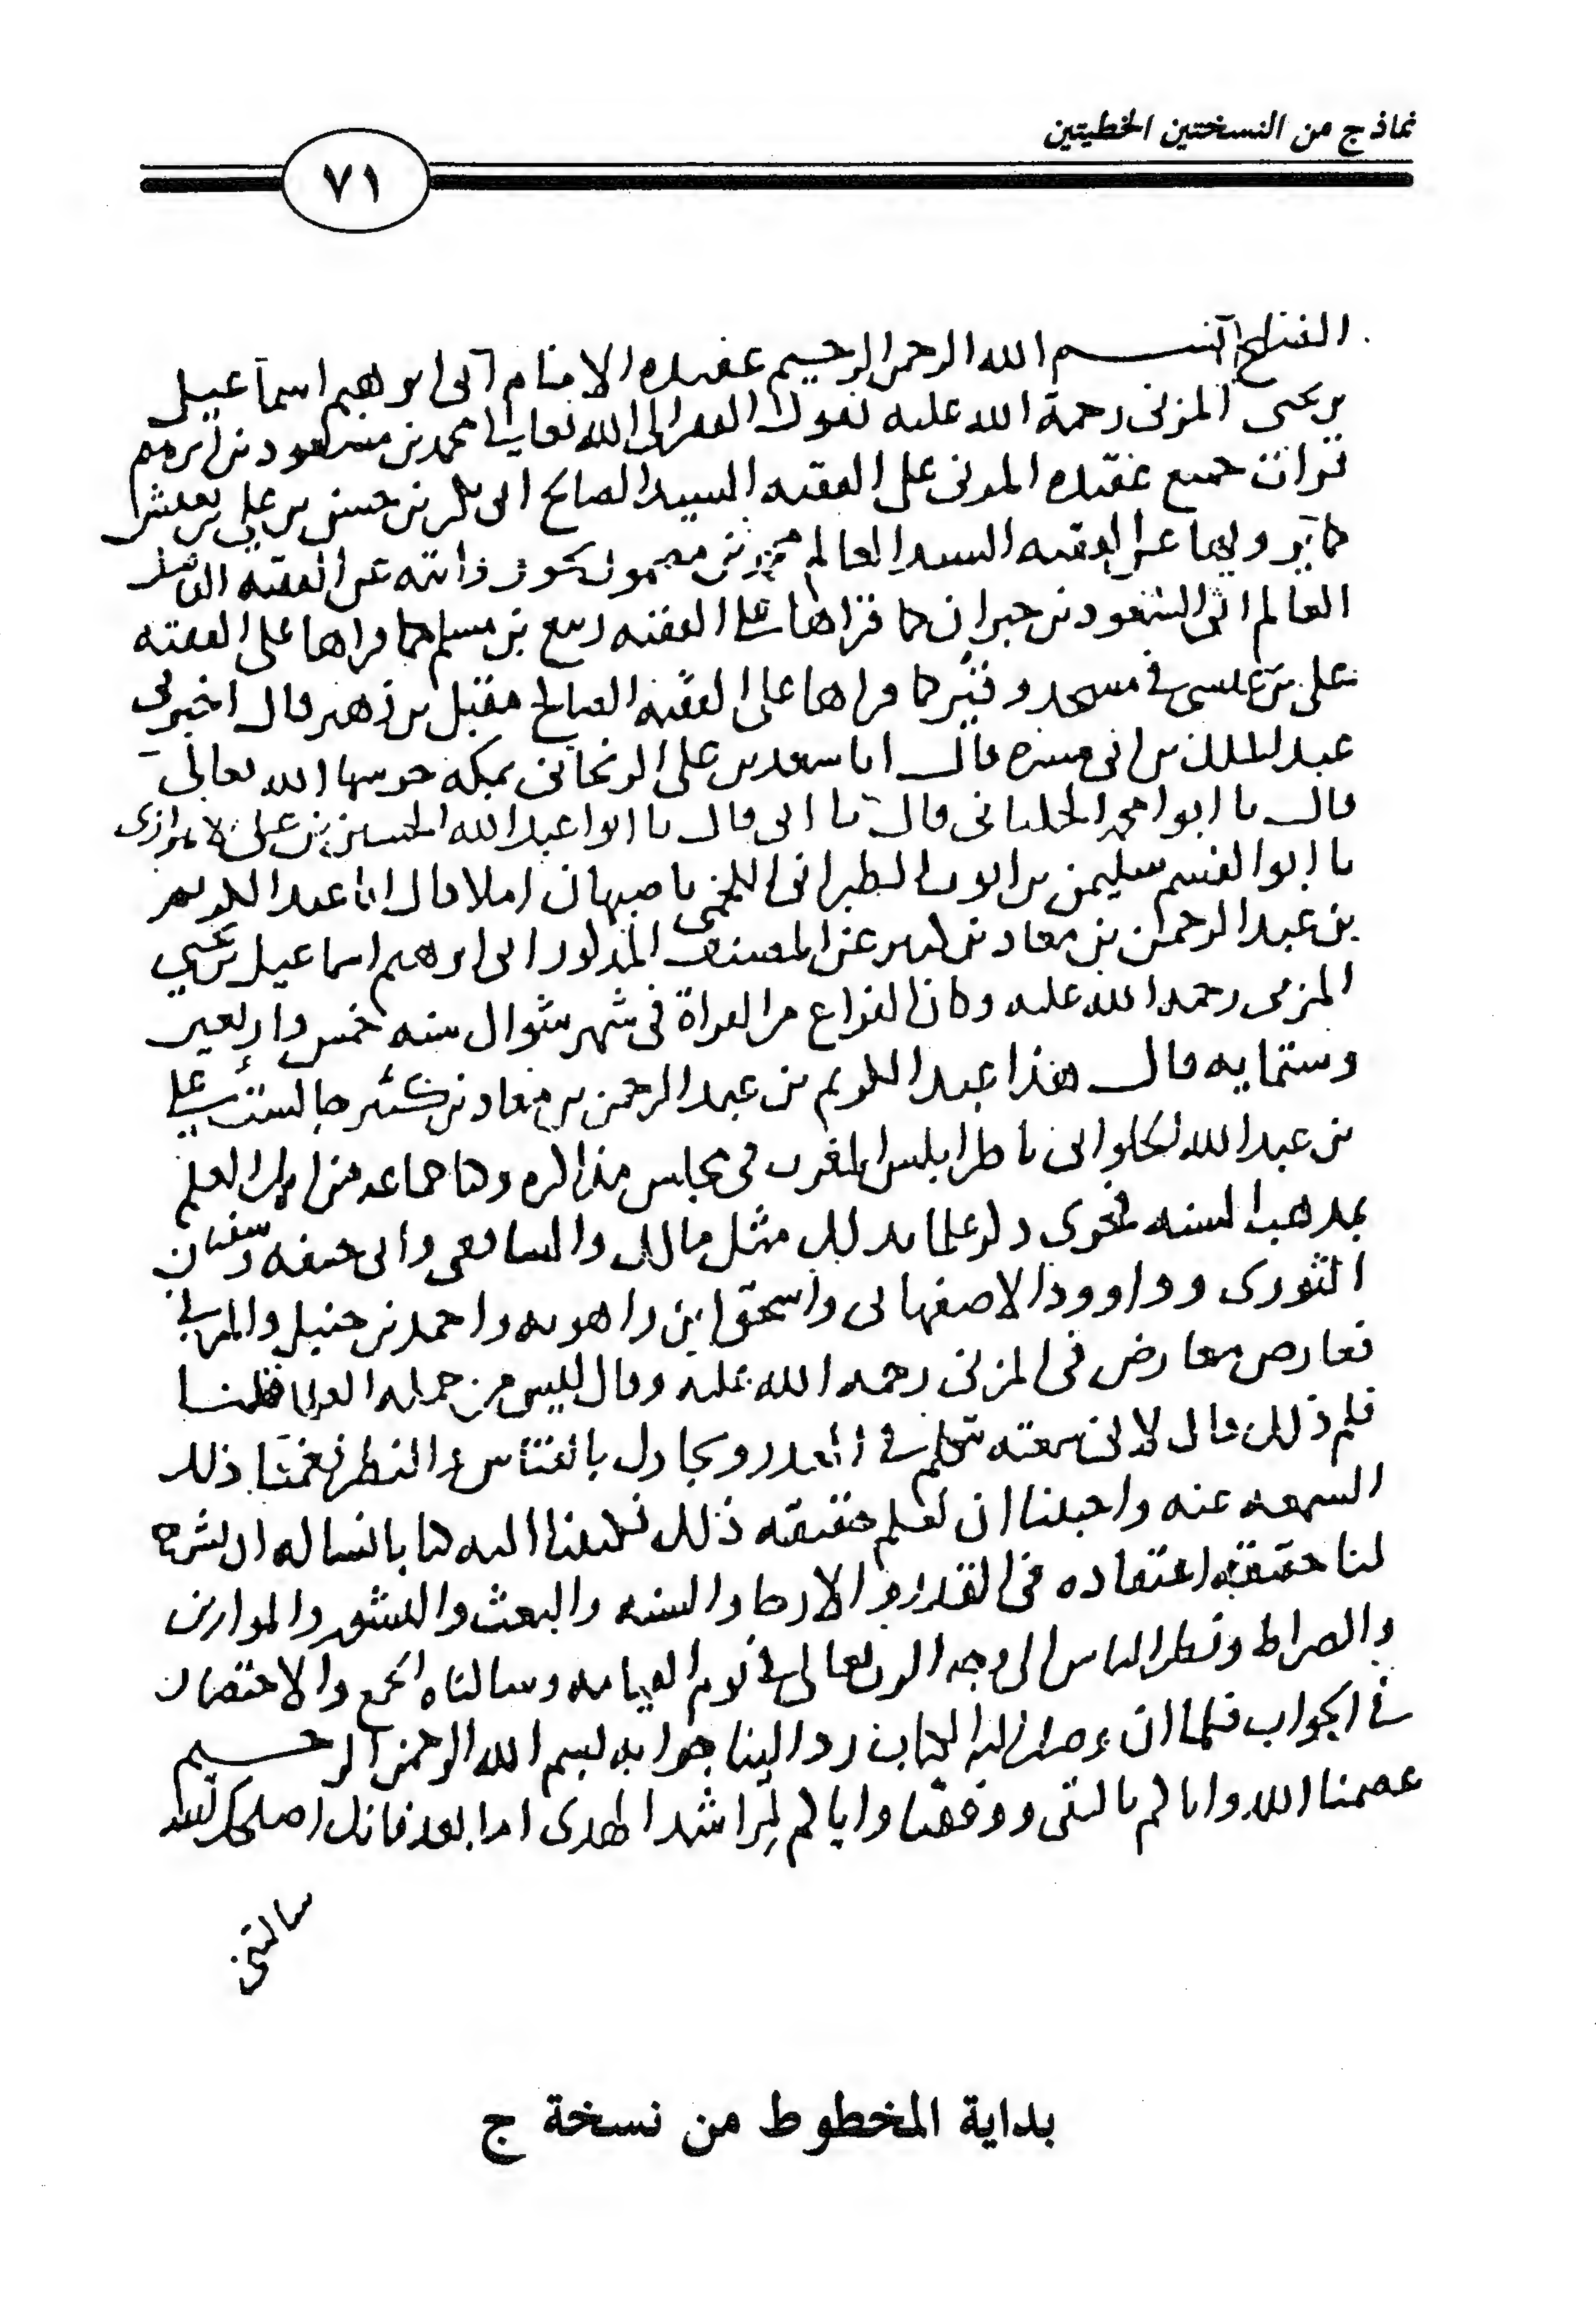 نماذج من النسختين الخطيتين
٧١
بسم الله الرحمن الرحيم عقيده الامام ابى ابرهيم اسماعيل
بن يحيى المزنى رحمة الله عليه يقول الفقير الى الله تعالى محمد بن مسعود بن
قرات جميع عقيده المزنى على الفقيه السيد الصالح ابى بكر بن حسن بن على بن
كما يرويها عن الفقيه السيد العالم عن الفقيه
العالم ابى السعود بن جبران كما قراها على الفقيه ربيع بن مسلم كما قراها على الفقيه
على بن عيسى فى مسجد كما قراها على الفقيه الصالح مقبل بن زهير قال اخبرنى
عبد الملك بن ابى ميسره قال انا سعد بن على الزنجانى بمكه حرسها الله تعالى
قال نا ابو محمد قال نا ابى قال نا ابو عبد الله الحسين بن على
نا ابو القسم سليمن بن ايوب الطبرانى اللخمى باصبهان املا قال انا عبد الكريم
بن عبد الرحمن بن معاد بن كثير عن المصنف المذكور ابى ابرهيم اسماعيل بن يحيى
المزنى رحمه الله عليه وكان الفراغ من القراة فى شهر شوال سنه خمس واربعين
وستمايه قال هذا عبد الكريم بن عبد الرحمن بن معاد بن كثير جالست على
بن عبد الله الحلوانى باطرابلس المغرب فى مجلس مذاكره وكنا جماعه من اهل العلم
بمذهب السنه فجرى ذكر علما بذلك مثل مالك والشافعى وابى حنيفه وسفيان
الثورى وداوود الاصفهانى واسحق ابن راهويه واحمد بن حنبل والمزنى
فعارض معارض فى المزنى رحمه الله عليه وقال ليس من جمله العلما قلنا
فلم ذلك قال لانى سمعته يتكلم فى القدر ويجادل بالقياس والنظر فغمنا ذلك
السمعه عنه واحببنا ان نعلم حقيقه ذلك فكتبنا اليه كتابا نساله ان يشرح
لنا حقيقه اعتقاده فى القدر والارجا والسنه والبعث والنشور والموازين
والصراط ونظر الناس الى وجه الرب تعالى فى يوم القيامه وسالناه الجمع والاختصار
فى الجواب فلما ان وصل اليه الكتاب رد الينا جوابه بسم الله الرحمن الرحيم
عصمنا الله واياكم بالتقى ووفقنا واياكم لمراشد الهدى اما بعد فانك اصلحك الله
سالتنى
بداية المخطوط من نسخة ج